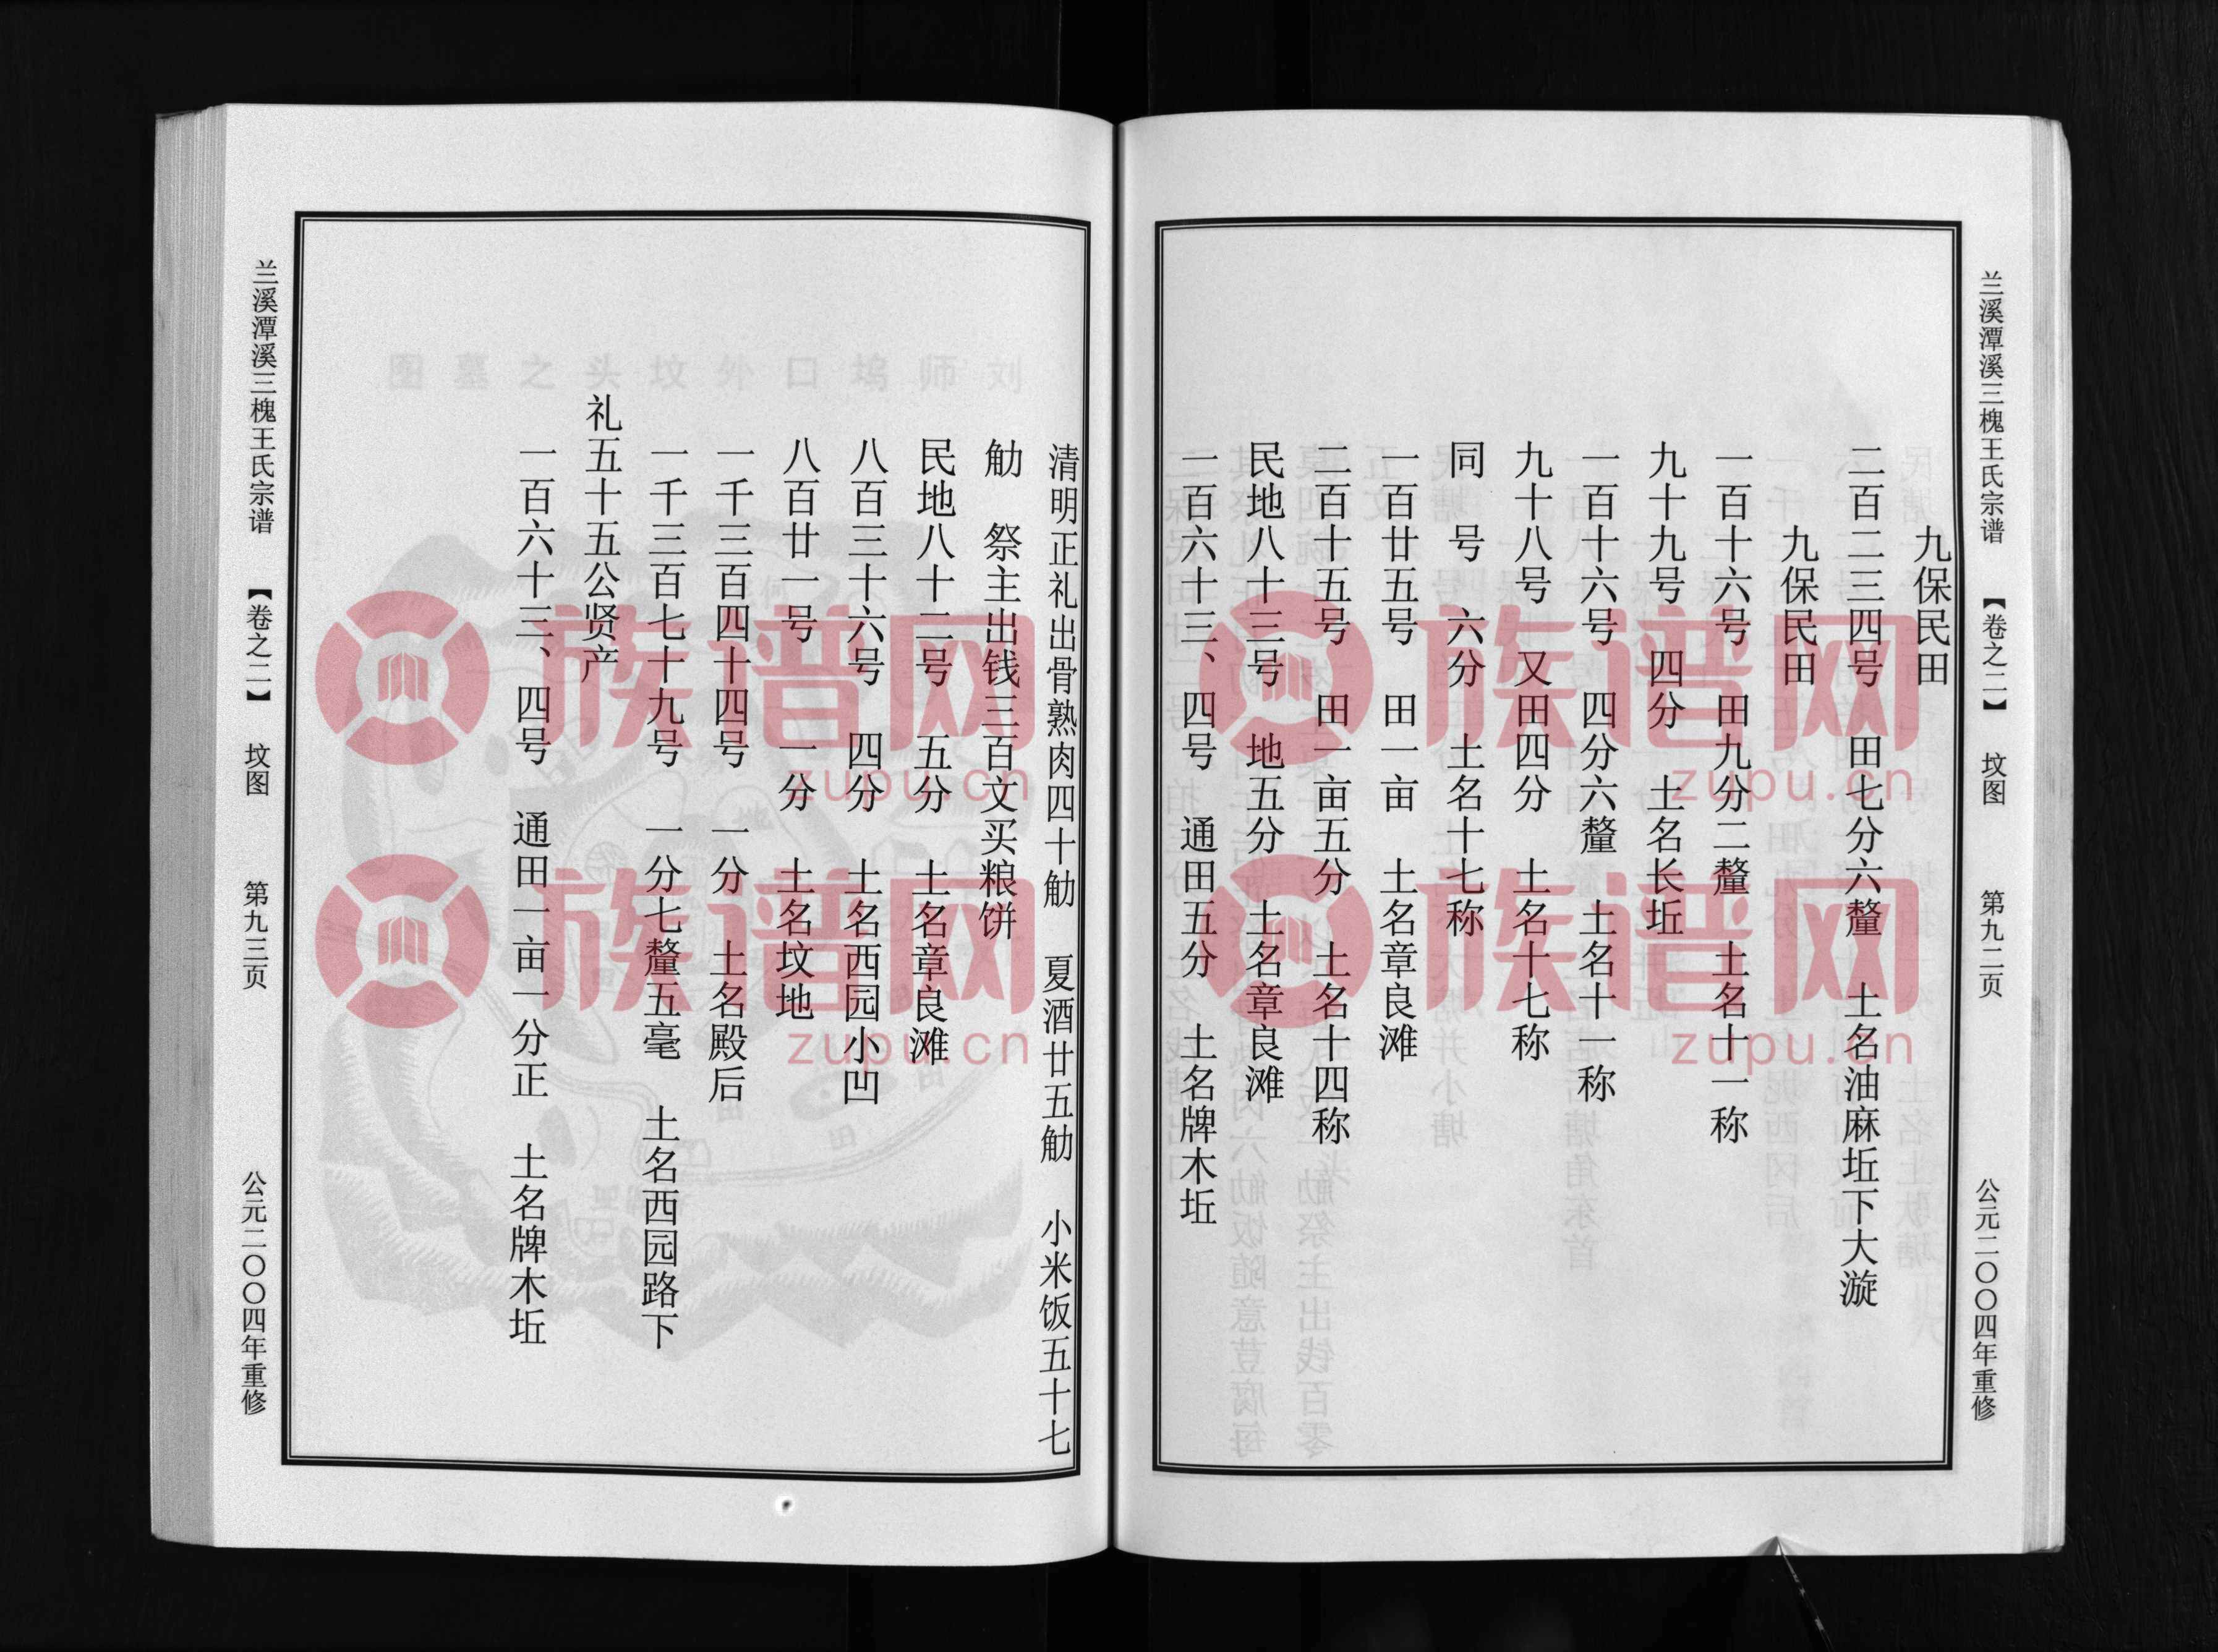 兰溪潭溪三槐王氏宗谱 【卷之二】 坟图 第九二页 公元二〇〇四年重修
九保民田
二百二三四号 田七分六釐 土名油麻坵下大漩
九保民田
一百十六号 田九分二釐 土名十一称
九十九号 四分 土名长坵
一百十六号 四分六釐 土名十一称
九十八号 又田四分 土名十七称
同 号 六分 土名十七称
一百廿五号 田一亩 土名章良滩
二百十五号 田一亩五分 土名十四称
民地八十三号 地五分 土名章良滩
一百六十三、四号 通田五分 土名牌木坵
清明正礼出骨熟肉四十觔 夏酒廿五觔 小米饭五十七
觔 祭主出钱三百文买粮饼
民地八十二号 五分 土名章良滩
八百三十六号 四分 土名西园小凹
八百廿一号 一分 土名坟地
一千三百四十四号 一分 土名殿后
一千三百七十九号 一分七釐五毫 土名西园路下
礼五十五公贤产
一百六十三、四号 通田一亩一分正 土名牌木坵
兰溪潭溪三槐王氏宗谱 【卷之二】 坟图 第九三页 公元二〇〇四年重修
族谱网
zupu.cn
族谱网
zupu.cn
族谱网
zupu.cn
族谱网
zupu.cn